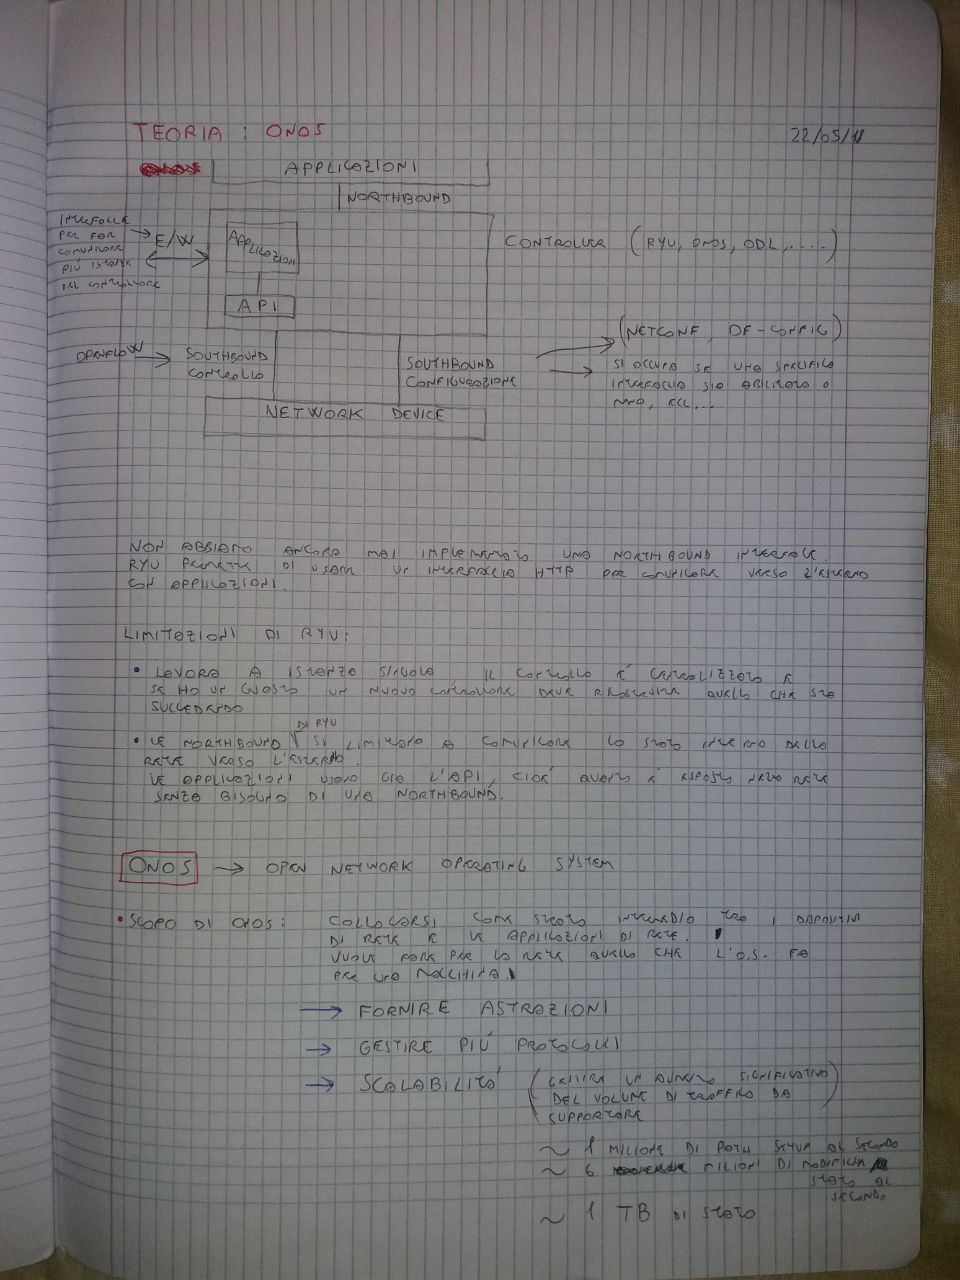 TEORIA : ONOS
22/05/18
APPLICAZIONI
NORTHBOUND
INTERFACCE
PER FAR
COMUNICARE
PIÙ ISTANZE
DEL CONTROLLER
E/W
APPLICAZIONI
API
CONTROLLER (RYU, ONOS, ODL, .....)
OPENFLOW
SOUTHBOUND
CONTROLLO
SOUTHBOUND
CONFIGURAZIONE
(NETCONF, OF-CONFIG)
SI OCCUPA SE UNA SPECIFICA
INTERFACCIA SIA ABILITATA O
NO, ECC,...
NETWORK DEVICE
NON ABBIAMO ANCORA MAI IMPLEMENTATO UNA NORTHBOUND INTERFACE.
RYU PERMETTE DI USARE UN INTERFACCIA HTTP PER COMUNICARE VERSO L'ESTERNO
CON APPLICAZIONI.
LIMITAZIONI DI RYU:
• LAVORA A ISTANZA SINGOLA IL CONTROLLO È CENTRALIZZATO E
SE HO UN GUASTO UN NUOVO CONTROLLORE DEVE APPRENDERE QUELLO CHE STA
SUCCEDENDO
• LE NORTHBOUND DI RYU SI LIMITANO A COMUNICARE LO STATO INTERNO DELLA
RETE VERSO L'ESTERNO.
LE APPLICAZIONI USANO GIÀ L'API, CIOÈ QUANTO È ESPOSTO NELLA RETE
SENZA BISOGNO DI UNA NORTHBOUND.
ONOS → OPEN NETWORK OPERATING SYSTEM
• SCOPO DI ONOS: COLLOCARSI COME STRATO INTERMEDIO TRA I DISPOSITIVI
DI RETE E LE APPLICAZIONI DI RETE.
VUOLE FARE PER LA RETE QUELLO CHE L'O.S. FA
PER UNA MACCHINA.
→ FORNIRE ASTRAZIONI
→ GESTIRE PIÙ PROTOCOLLI
→ SCALABILITÀ (GESTIRE UN AUMENTO SIGNIFICATIVO
DEL VOLUME DI TRAFFICO DA
SUPPORTARE)
~ 1 MILIONE DI PATH SETUP AL SECONDO
~ 6 MILIONI DI MODIFICHE
STATO AL
SECONDO
~ 1 TB DI STATO